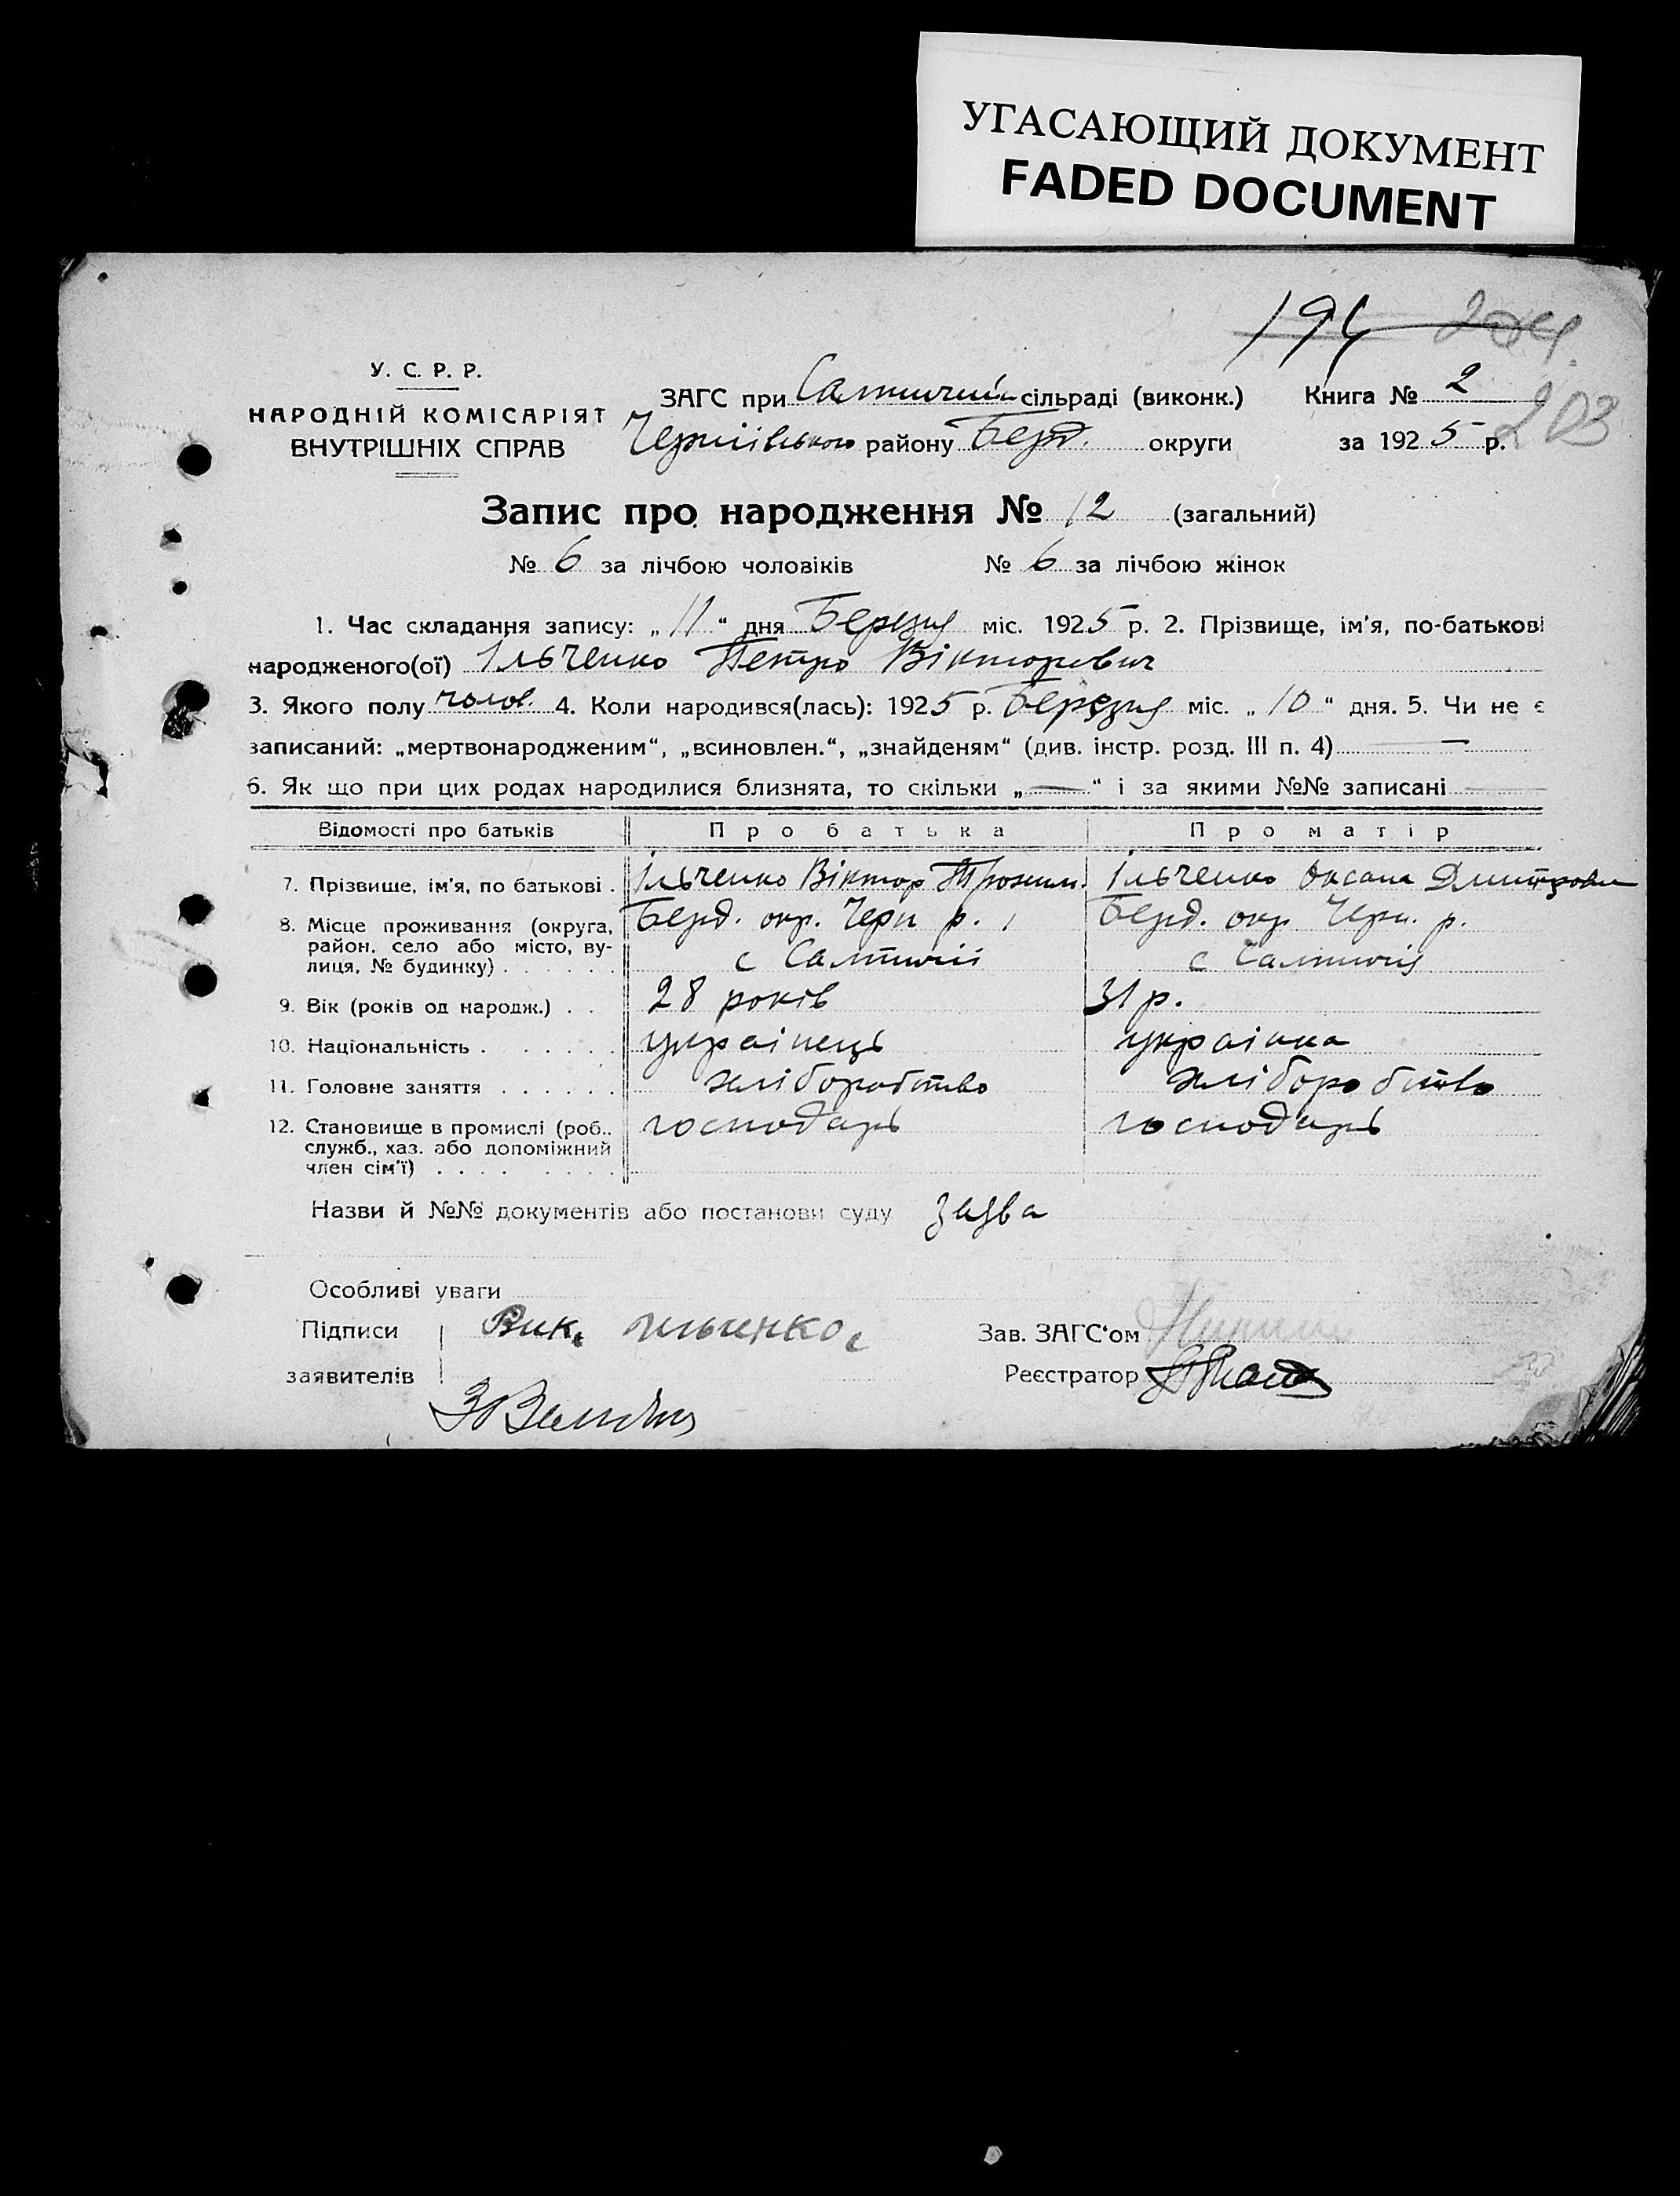 УГАСАЮЩИЙ ДОКУМЕНТ
FADED DOCUMENT
203
У. С. Р. Р.
НАРОДНІЙ КОМІСАРІЯТ
ВНУТРІШНІХ СПРАВ
ЗАГС при сільраді (виконк.) Книга № 2
Чернігівського району Берд. округи за 1925 р.
Запис про народження № 12 (загальний)
№ 6 за лічбою чоловіків № 6 за лічбою жінок
1. Час складання запису: „11“ дня Березня міс. 1925 р. 2. Прізвище, ім'я, по-батькові
народженого(ої) Ільченко Петро Вікторович
3. Якого полу чолов. 4. Коли народився(лась): 1925 р. Березня міс. „10“ дня. 5. Чи не є
записаний: „мертвонародженим“, „всиновлен.“, „знайденям“ (див. інстр. розд. III п. 4) —
6. Як що при цих родах народилися близнята, то скільки „—“ і за якими №№ записані
Відомості про батьків Про батька Про матір
7. Прізвище, ім'я, по батькові . Ільченко Віктор Трохим. Ільченко Оксана Дмитровн
8. Місце проживання (округа, Берд. окр. Черн р. Берд. окр Черн. р.
район, село або місто, ву-
лиця, № будинку) . . . . . . с Салтичії с Салтичія
9. Вік (років од народж.) . . 28 років 31 р.
10. Національність . . . . . . українець українка
11. Головне заняття . . . . . . хліборобство хліборобство
12. Становище в промислі (роб., господарь господарь
служб., хаз. або допоміжний
член сім'ї) . . . . . . .
Назви й №№ документів або постанови суду заява
Особливі уваги
Підписи Вик. Зав. ЗАГС'ом
заявителів Реєстратор